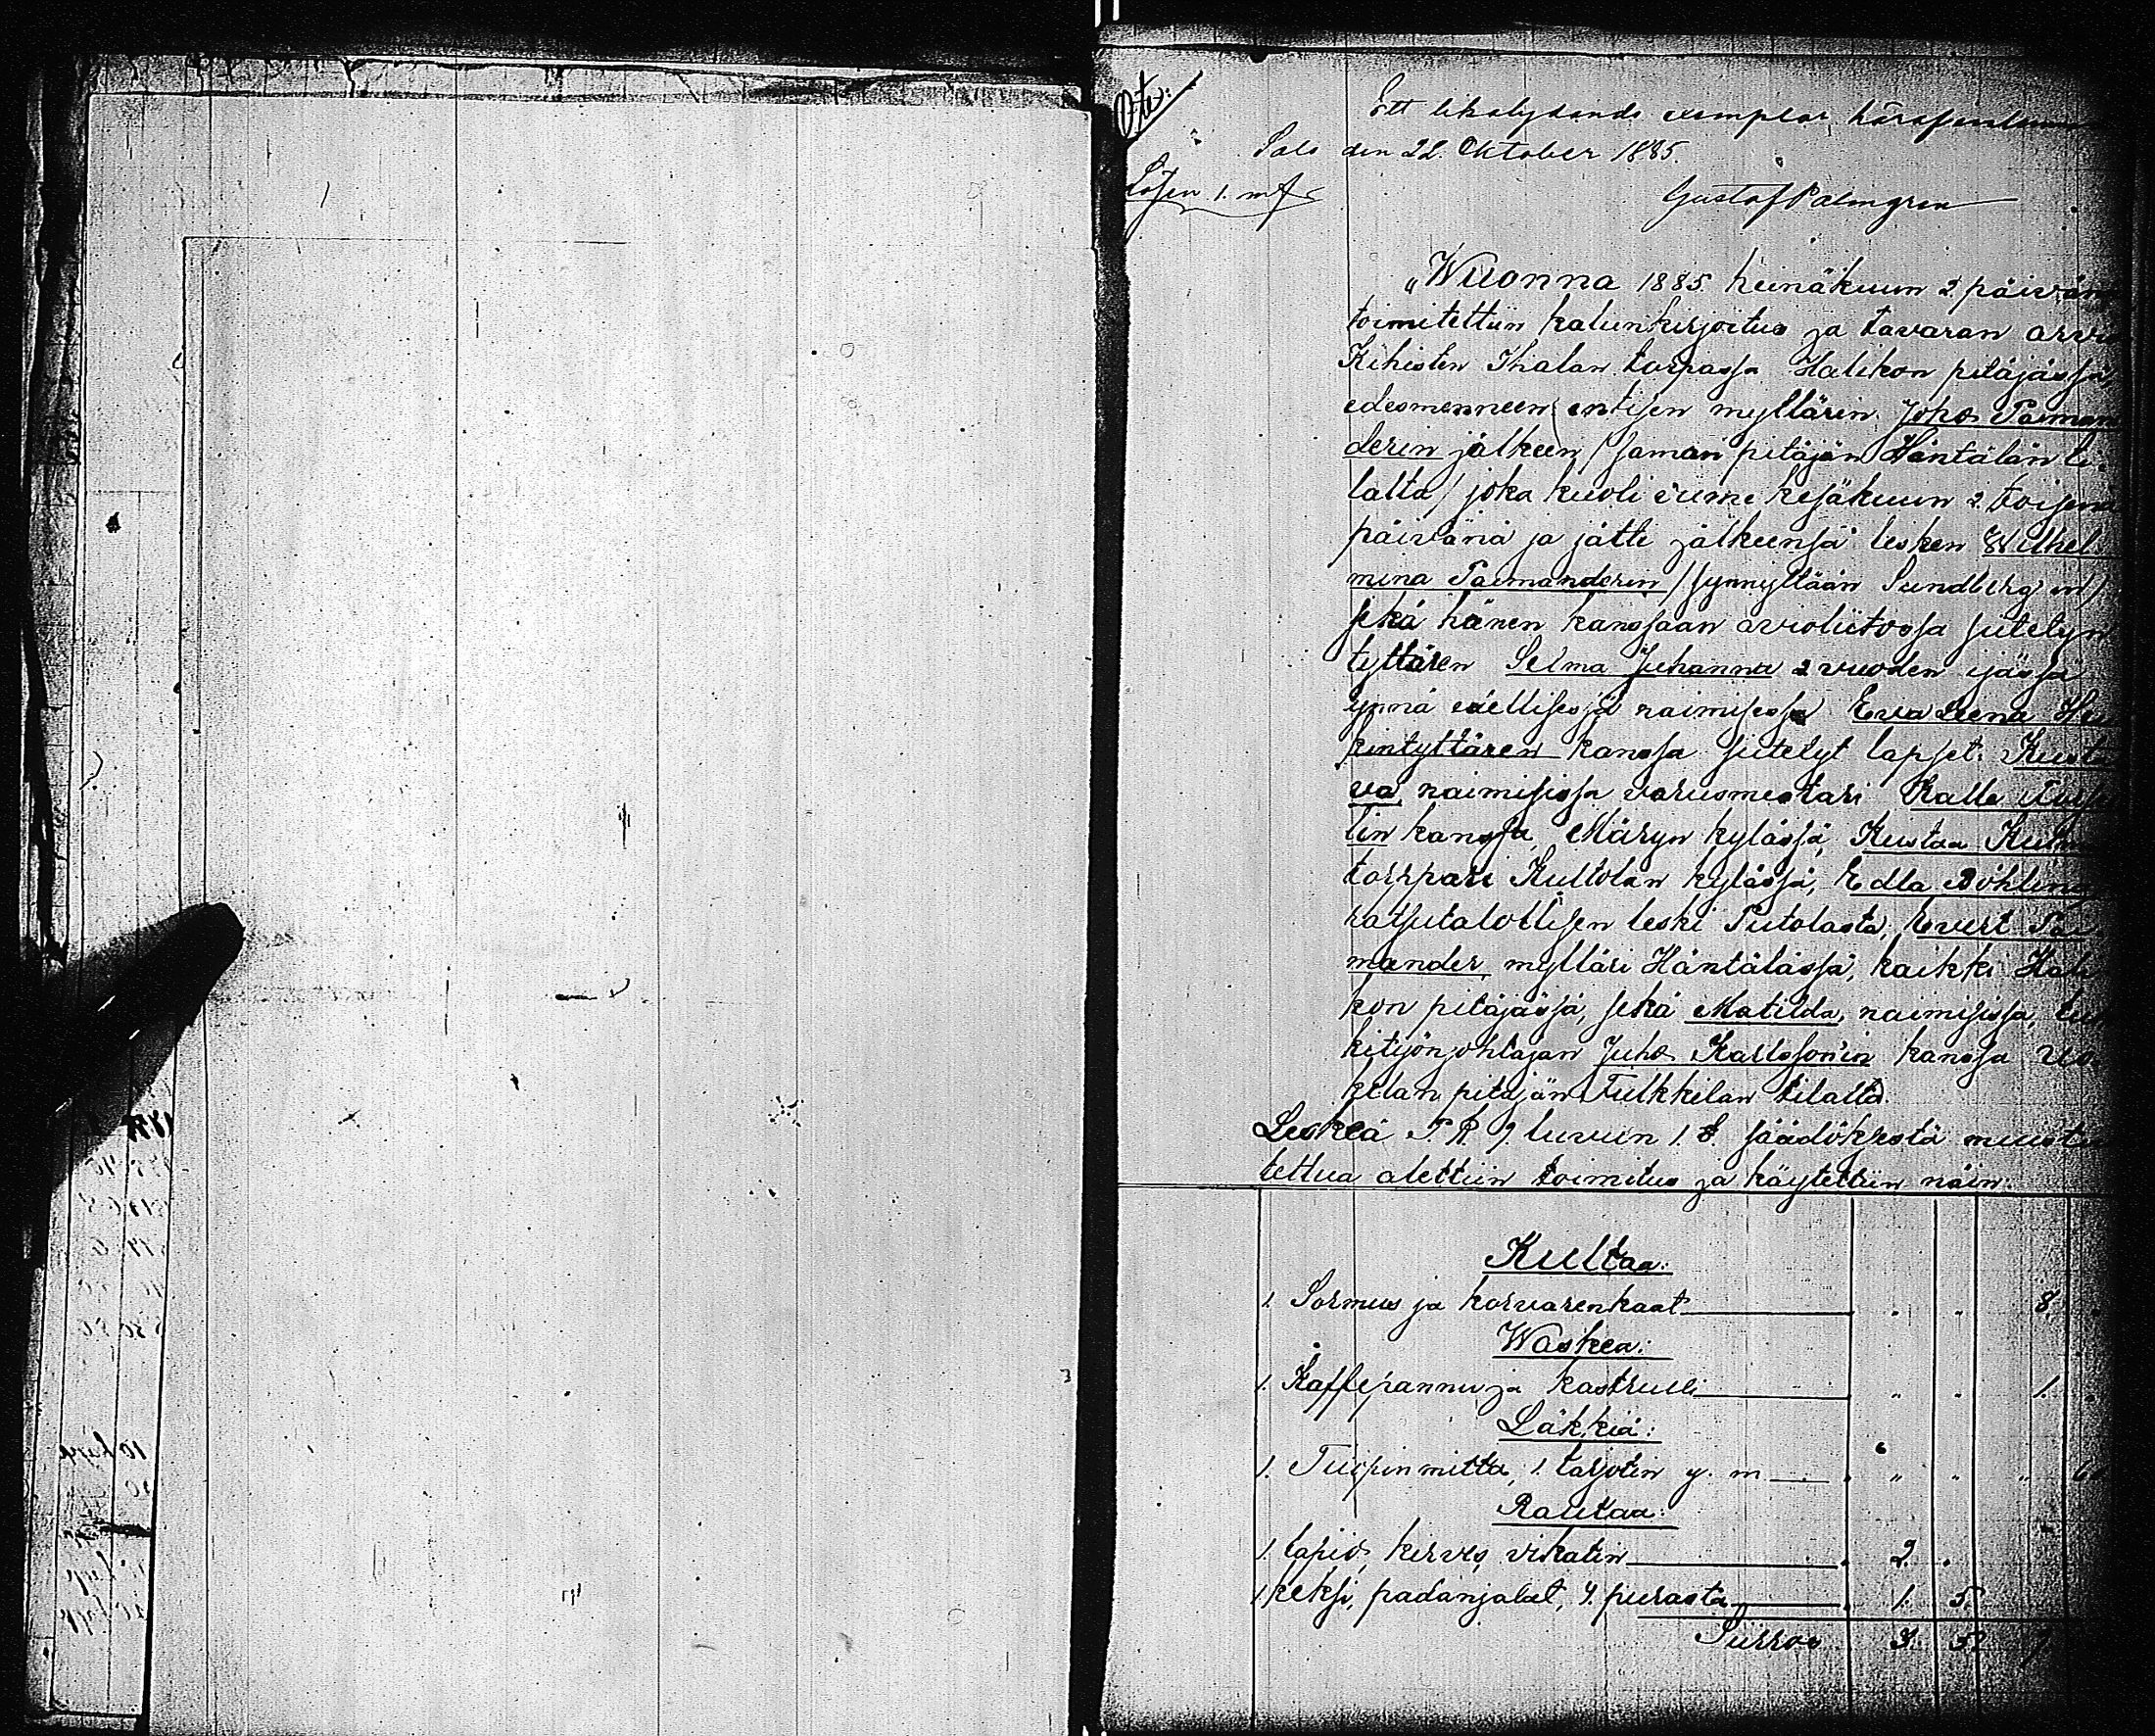 Ett likalydande exemplar härafinlemn
Salo den 22. Oktober 1885.
Lösen 1. mf
Gustaf Palmgren
„Wuonna 1885. heinäkuun 2. päivän
toimitettiin kalunkirjoitus ja tavaran arvio
Kihisten Ihalan torpassa Halikon pitäjässä,
edesmenneen entisen myllärin Joho Paiman
derin jälkeen / saman pitäjän Häntälän ti-
lalta / joka kuoli viime kesäkuun 2. toisena
päivänä ja jätti jälkeensä lesken Wilhel-
mina Paimanderin / synnyltään Sundberg in /
sekä hänen kanssaan avioliitossa siitetyn
tyttären Selma Johanna 2 vuoden ijässä
ynnä edellisessä naimisessa Eva Leena Hei
kintyttären kanssa siitetyt lapset: Kusta
va, naimisissa varusmestari Kalle
lin kanssa, Märyn kylässä, Kustaa
torppari Kultolan kylässä, Edla Böhling
ratsutalollisen leski Piitolasta, Evert Pai
mander, mylläri Häntälässä, kaikki Hali
kon pitäjässä, sekä Matilda, naimisissa,
kityönjohtajan Juho Karlsson'in kanssa Us-
kelan pitäjän Tulkkilan tilalta.
Leskeä P. K. 9 luvun 1. §. säädöksestä muistu
tettua alettiin toimitus ja käytettiin näin:
Kultaa:
1. Sormus ja korvarenkaat " " 8 "
Waskea:
1. Kaffepannu ja kastrulli " " 1. "
Läkkiä:
1. Tuopinmitta, 1. tarjotin y. m. " " " 60
Rautaa:
1. lapio, kirves, vikatin 2. "
1 keksi, padanjalat, 4. purasta 1. 5.
Siirros 3. 5. 9